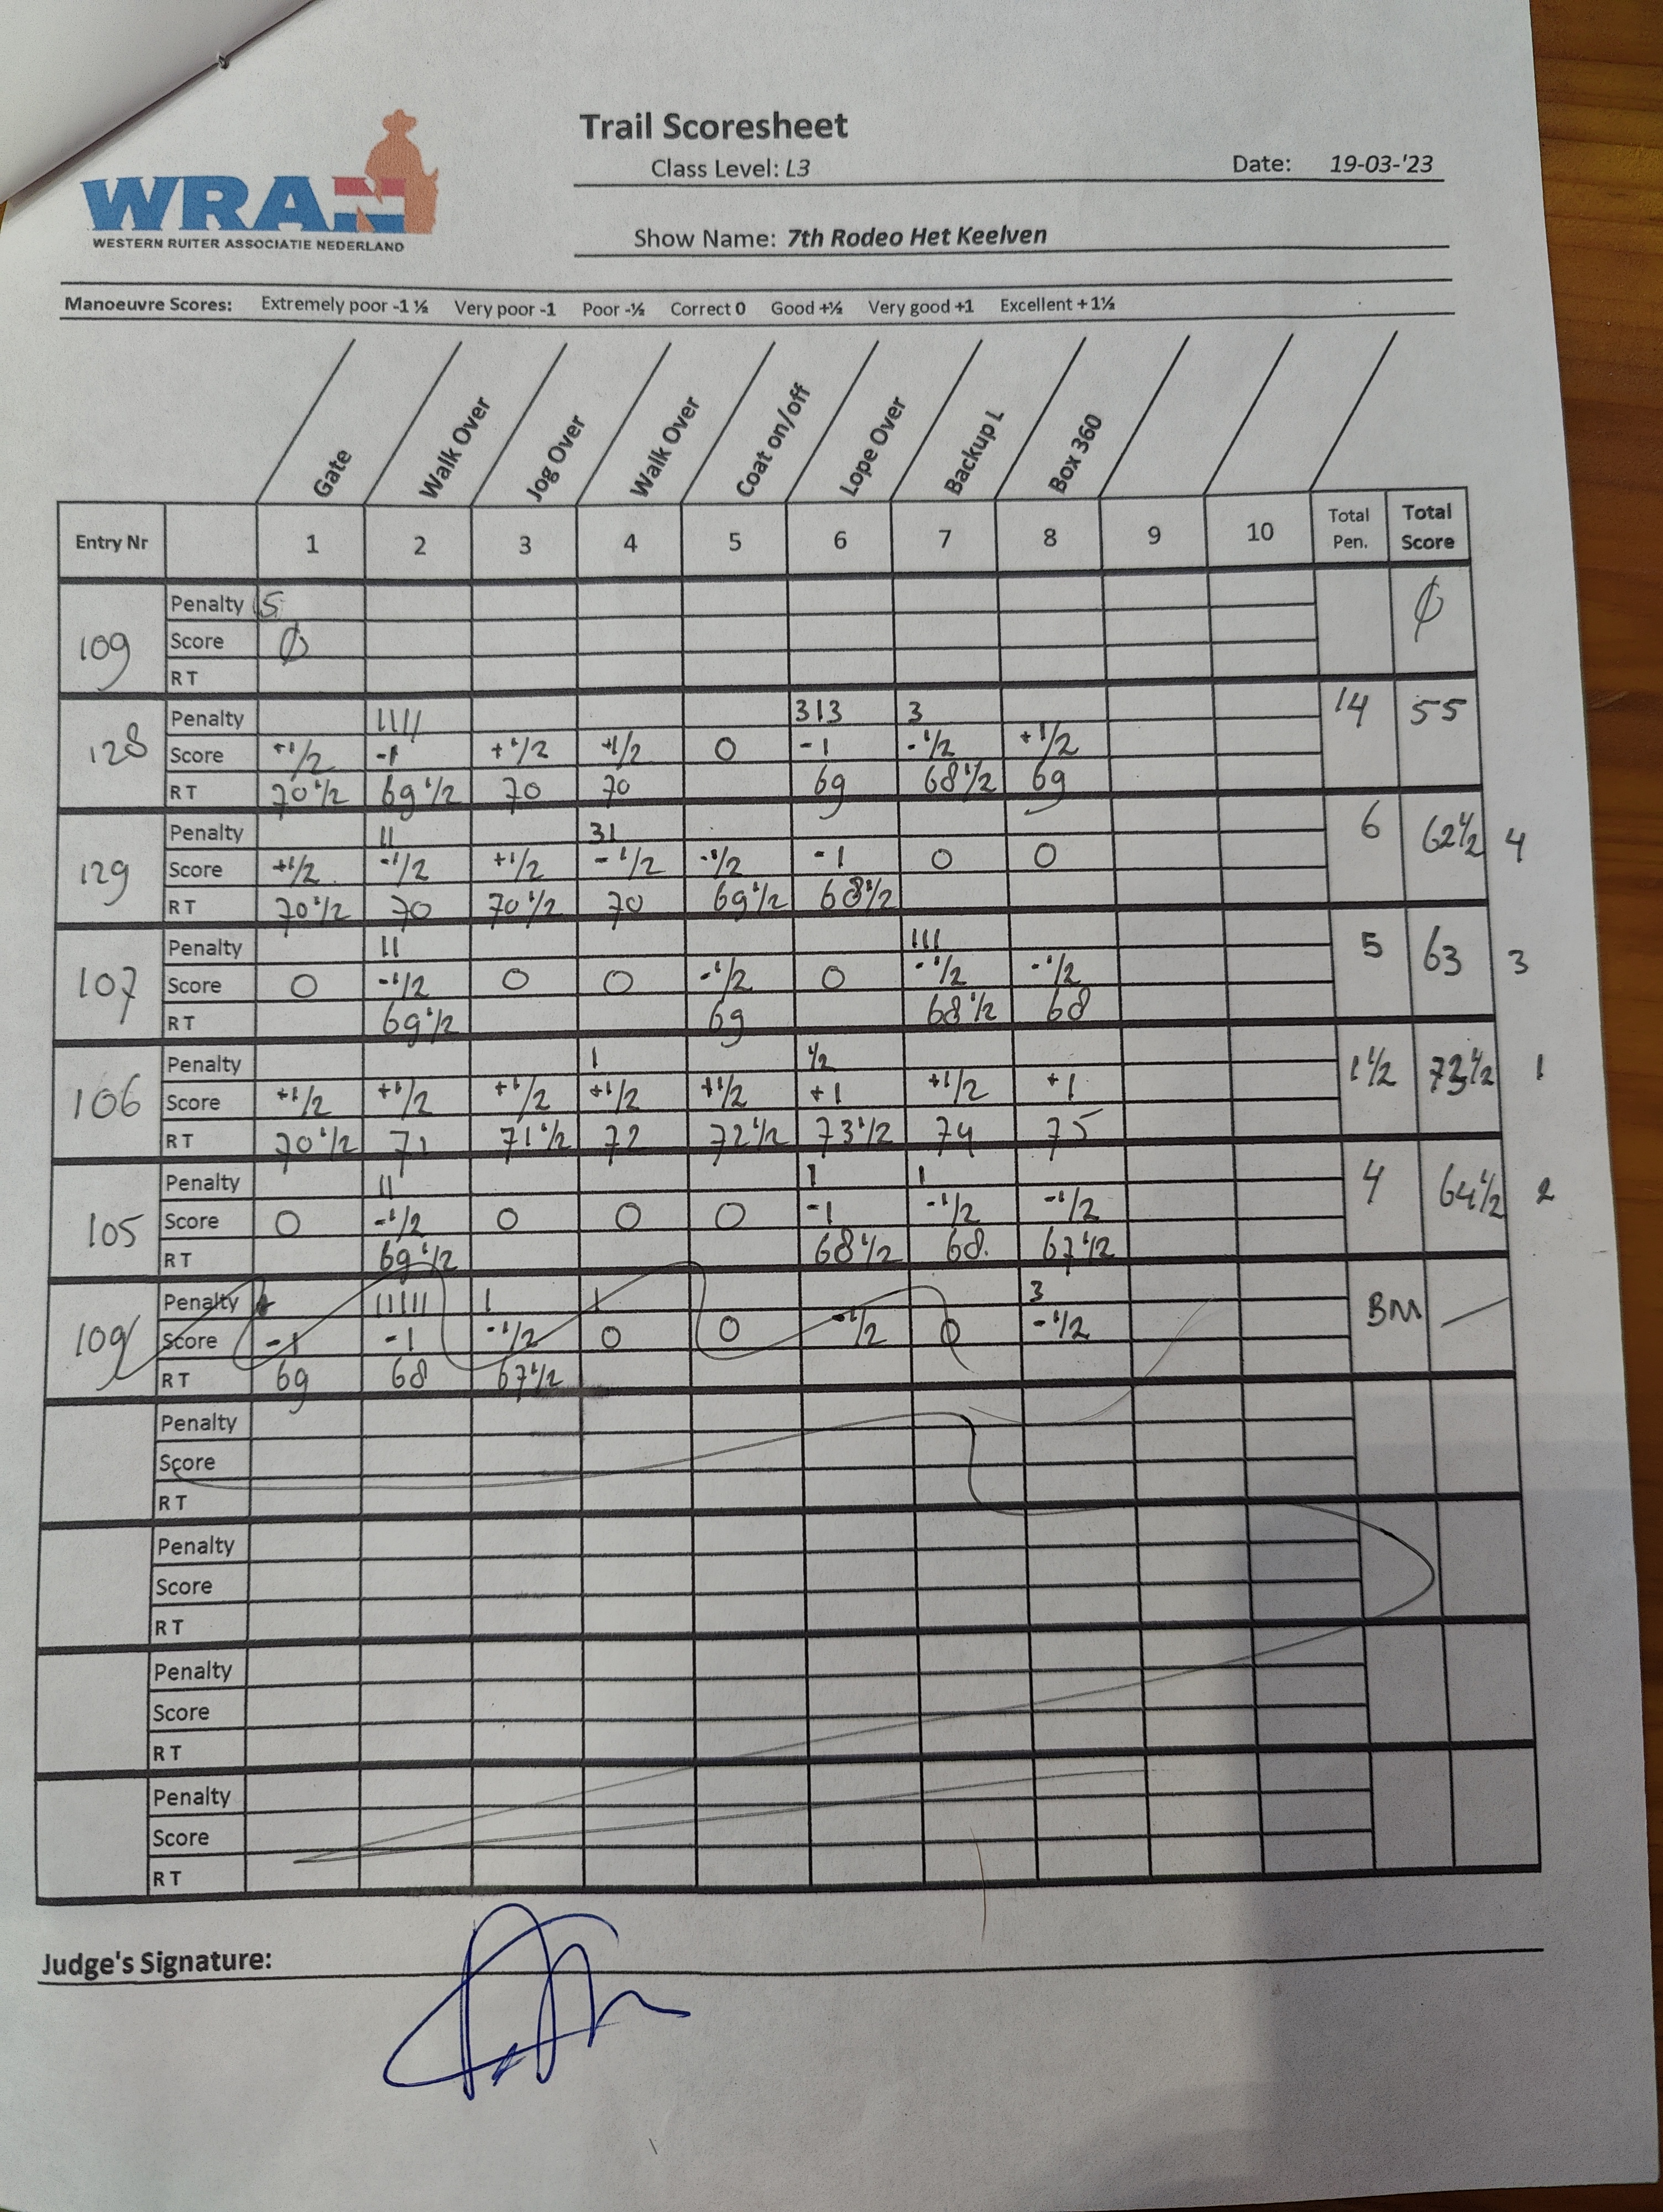 WRAN
WESTERN RUITER ASSOCIATIE NEDERLAND
Trail Scoresheet
Class Level: L3
Date: 19-03-'23
Show Name: 7th Rodeo Het Keelven
Manoeuvre Scores: Extremely poor -1 ½ Very poor -1 Poor -½ Correct 0 Good +½ Very good +1 Excellent + 1½
Gate Walk Over Jog Over Walk Over Coat on/off Lope Over Backup L Box 360
Entry Nr 1 2 3 4 5 6 7 8 9 10 Total Pen. Total Score
109
Penalty 5
Score 0
RT
0
128
Penalty 1111 313 3
Score +1/2 -1 +1/2 +1/2 0 -1 -1/2 +1/2
RT 70 1/2 69 1/2 70 70 69 68 1/2 69
14 55
129
Penalty 11 31
Score +1/2 -1/2 +1/2 -1/2 -1/2 -1 0 0
RT 70 1/2 70 70 1/2 70 69 1/2 68 1/2
6 62 1/2 4
107
Penalty 11 111
Score 0 -1/2 0 0 -1/2 0 -1/2 -1/2
RT 69 1/2 69 68 1/2 68
5 63 3
106
Penalty 1 1/2
Score +1/2 +1/2 +1/2 +1/2 +1/2 +1 +1/2 +1
RT 70 1/2 71 71 1/2 72 72 1/2 73 1/2 74 75
1 1/2 73 1/2 1
105
Penalty 11 1 1
Score 0 -1/2 0 0 0 -1 -1/2 -1/2
RT 69 1/2 68 1/2 68 67 1/2
4 64 1/2 2
109
Penalty 11111 1 1 3
Score -1 -1 -1/2 0 0 -1/2 0 -1/2
RT 69 68 67 1/2
BM —
Penalty
Score
RT
Penalty
Score
RT
Penalty
Score
RT
Penalty
Score
RT
Judge's Signature: